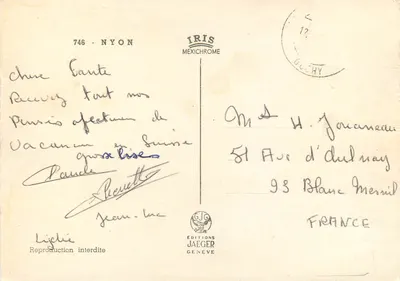 746 - NYON
IRIS
MEXICHROME
Chère Tante
Recevez tout nos
Pensées affectueuses de
Vacances en Suisse
grosse bises
Claude
Jean-Luc
Reproduction interdite
EDITIONS
JAEGER
GENÈVE
H. Jouanneau
51 Rue d'Aulnay
93 Blanc Mesnil
FRANCE